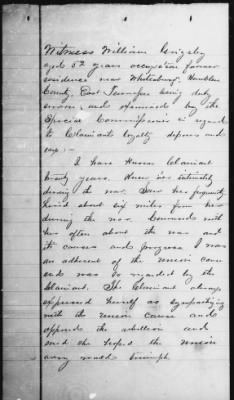 Witness William Grigsby
aged 52 years occupation farmer
residence near Whitesburg, Hamblen
County, East Tennessee being duly
sworn, and examined by the
Special Commissioner in regard
to Claimants loyalty deposes and
says:-
I have known Claimant
twenty years. Knew her intimately
during the war. Saw her frequently
lived about six miles from her
during the war. Conversed with
her often about the war and
its causes and progress I was
an adherent of the union cause
and was so regarded by the
Claimant. The Claimant always
expressed herself as sympathizing
with the union cause and
opposed the rebellion and
said she hoped the union
army would triumph